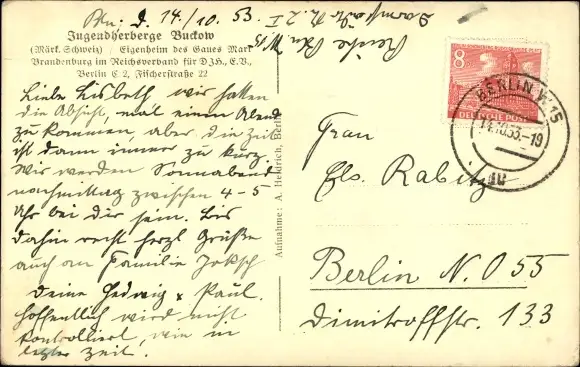 Bln. d. 14/10. 53.
Jugendherberge Buckow
(Märk. Schweiz) / Eigenheim des Gaues Mark
Brandenburg im Reichsverband für D.J.H., E.V.,
Berlin C 2, Fischerstraße 22
Liebe Lisbeth wir hatten
die Absicht, mal einen Abend
zu kommen, aber die Zeit
ist dann immer zu kurz.
Wir werden Sonnabend
nachmittag zwischen 4-5
Uhr bei dir sein. Bis
dahin recht herzl Grüße
auch an Familie
deine Hedwig x Paul.
Hoffentlich wird nicht
kontrolliert, wie in
letzter Zeit.
Aufnahme: A. Heinrich, Berlin
Bln W 15
8
DEUTSCHE POST
BERLIN W 15
14.10.53.-19
Frau
Els. Rabitz
Berlin N.O 55
Dimitroffstr. 133